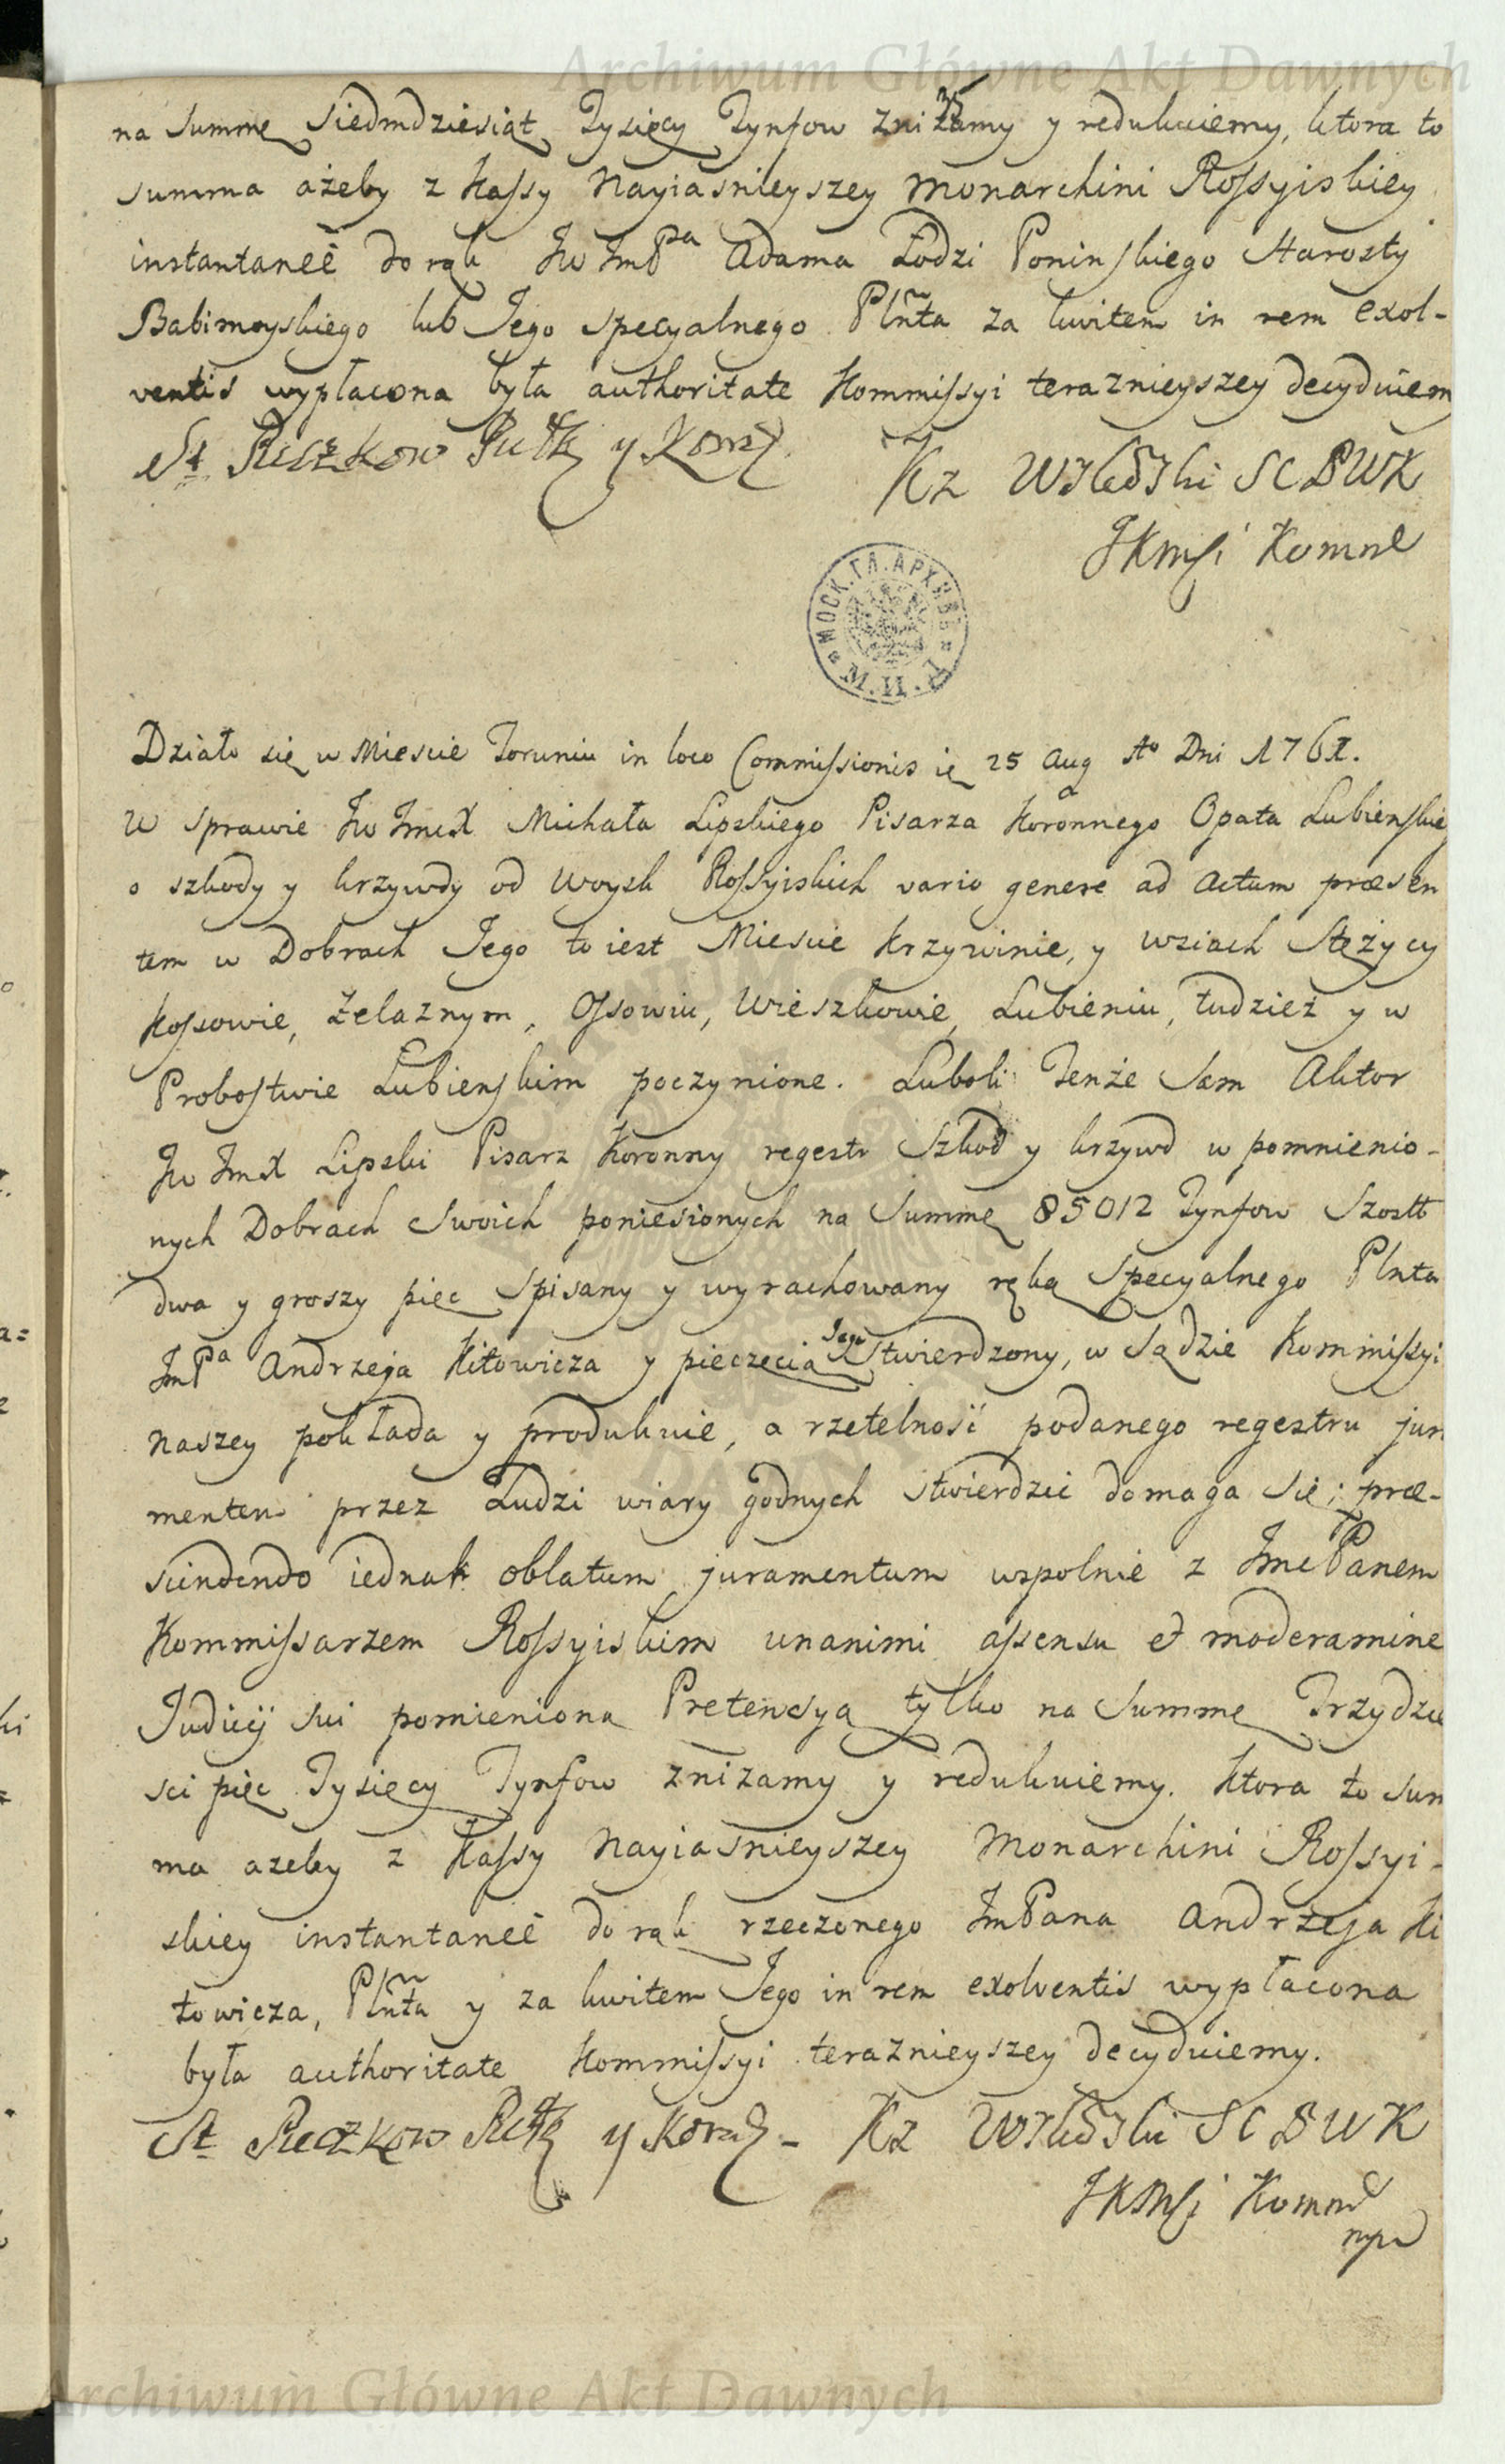 Archiwum Główne Akt Dawnych
na Summę Siedmdziesiąt Tysięcy Tynfow zniżamy y redukuiemy, ktora to
summa ażeby z Kassy Nayiasnieyszey Monarchini Rossyiskiey
instantaneè do rąk Jw JmPa Adama Łodzi Poninskiego Starosty
Babimoyskiego lub Jego specyalnego Plnta za kwitem in rem exol-
ventis wypłacona była authoritate Kommissyi teraznieyszey decyduiem
St y Kom
Kz SCBWK
JKMsi Komm
МОСК.ГЛ.АРХИВЪ М.И.Д.
Działo się w Miescie Toruniu in loco Commissionis ię 25 Aug Ao Dni 1761.
W sprawie Jw JmcX Michała Lipskiego Pisarza Koronnego Opata Lubienskie
o szkody y krzywdy od Woysk Rossyiskich vario genere ad Actum præsen
tem w Dobrach Jego to iest Miescie Krzywinie, y wsiach Stężycy
Kossowie, Żelaznym, Ossowiu, Wieszkowie, Lubieniu, tudzież y w
Probostwie Lubienskim poczynione. Luboli Tenże Sam Aktor
Jw JmX Lipski Pisarz Koronny regestr Szkod y krzywd w pomnienio-
nych Dobrach Swoich poniesionych na Summę 85012 Tynfow Szostk
dwa y groszy pięc Spisany y wyrachowany ręką Specyalnego Plnta
JmPa Andrzeja Kitowicza y pieczęcią Jego Stwierdzony, w Sądzie Kommissyi
naszey pokłada y produkuie, a rzetelność podanego regestru jur
mentem przez Ludzi wiary godnych stwierdzić domaga się; præ-
scindendo iednak oblatum juramentum wspolnie z Jmc Panem
Kommissarzem Rossyiskim unanimi assensu et moderamine
Judicij sui pomieniona Pretensyą tylko na Summę Trzydzie
sci pięc Tysięcy Tynfow zniżamy y redukuiemy. Ktora to sum
ma azeby z Kassy Nayiasnieyszey Monarchini Rossyi-
skiey instantaneè do rąk rzeczonego JmPana Andrzeja Ki
towicza, Plnta y za kwitem Jego in rem exolventis wypłacona
była authoritate Kommissyi teraznieyszey decyduiemy.
St y Kom - Kz SCBWK
JKMsi Komm
mp
Archiwum Główne Akt Dawnych